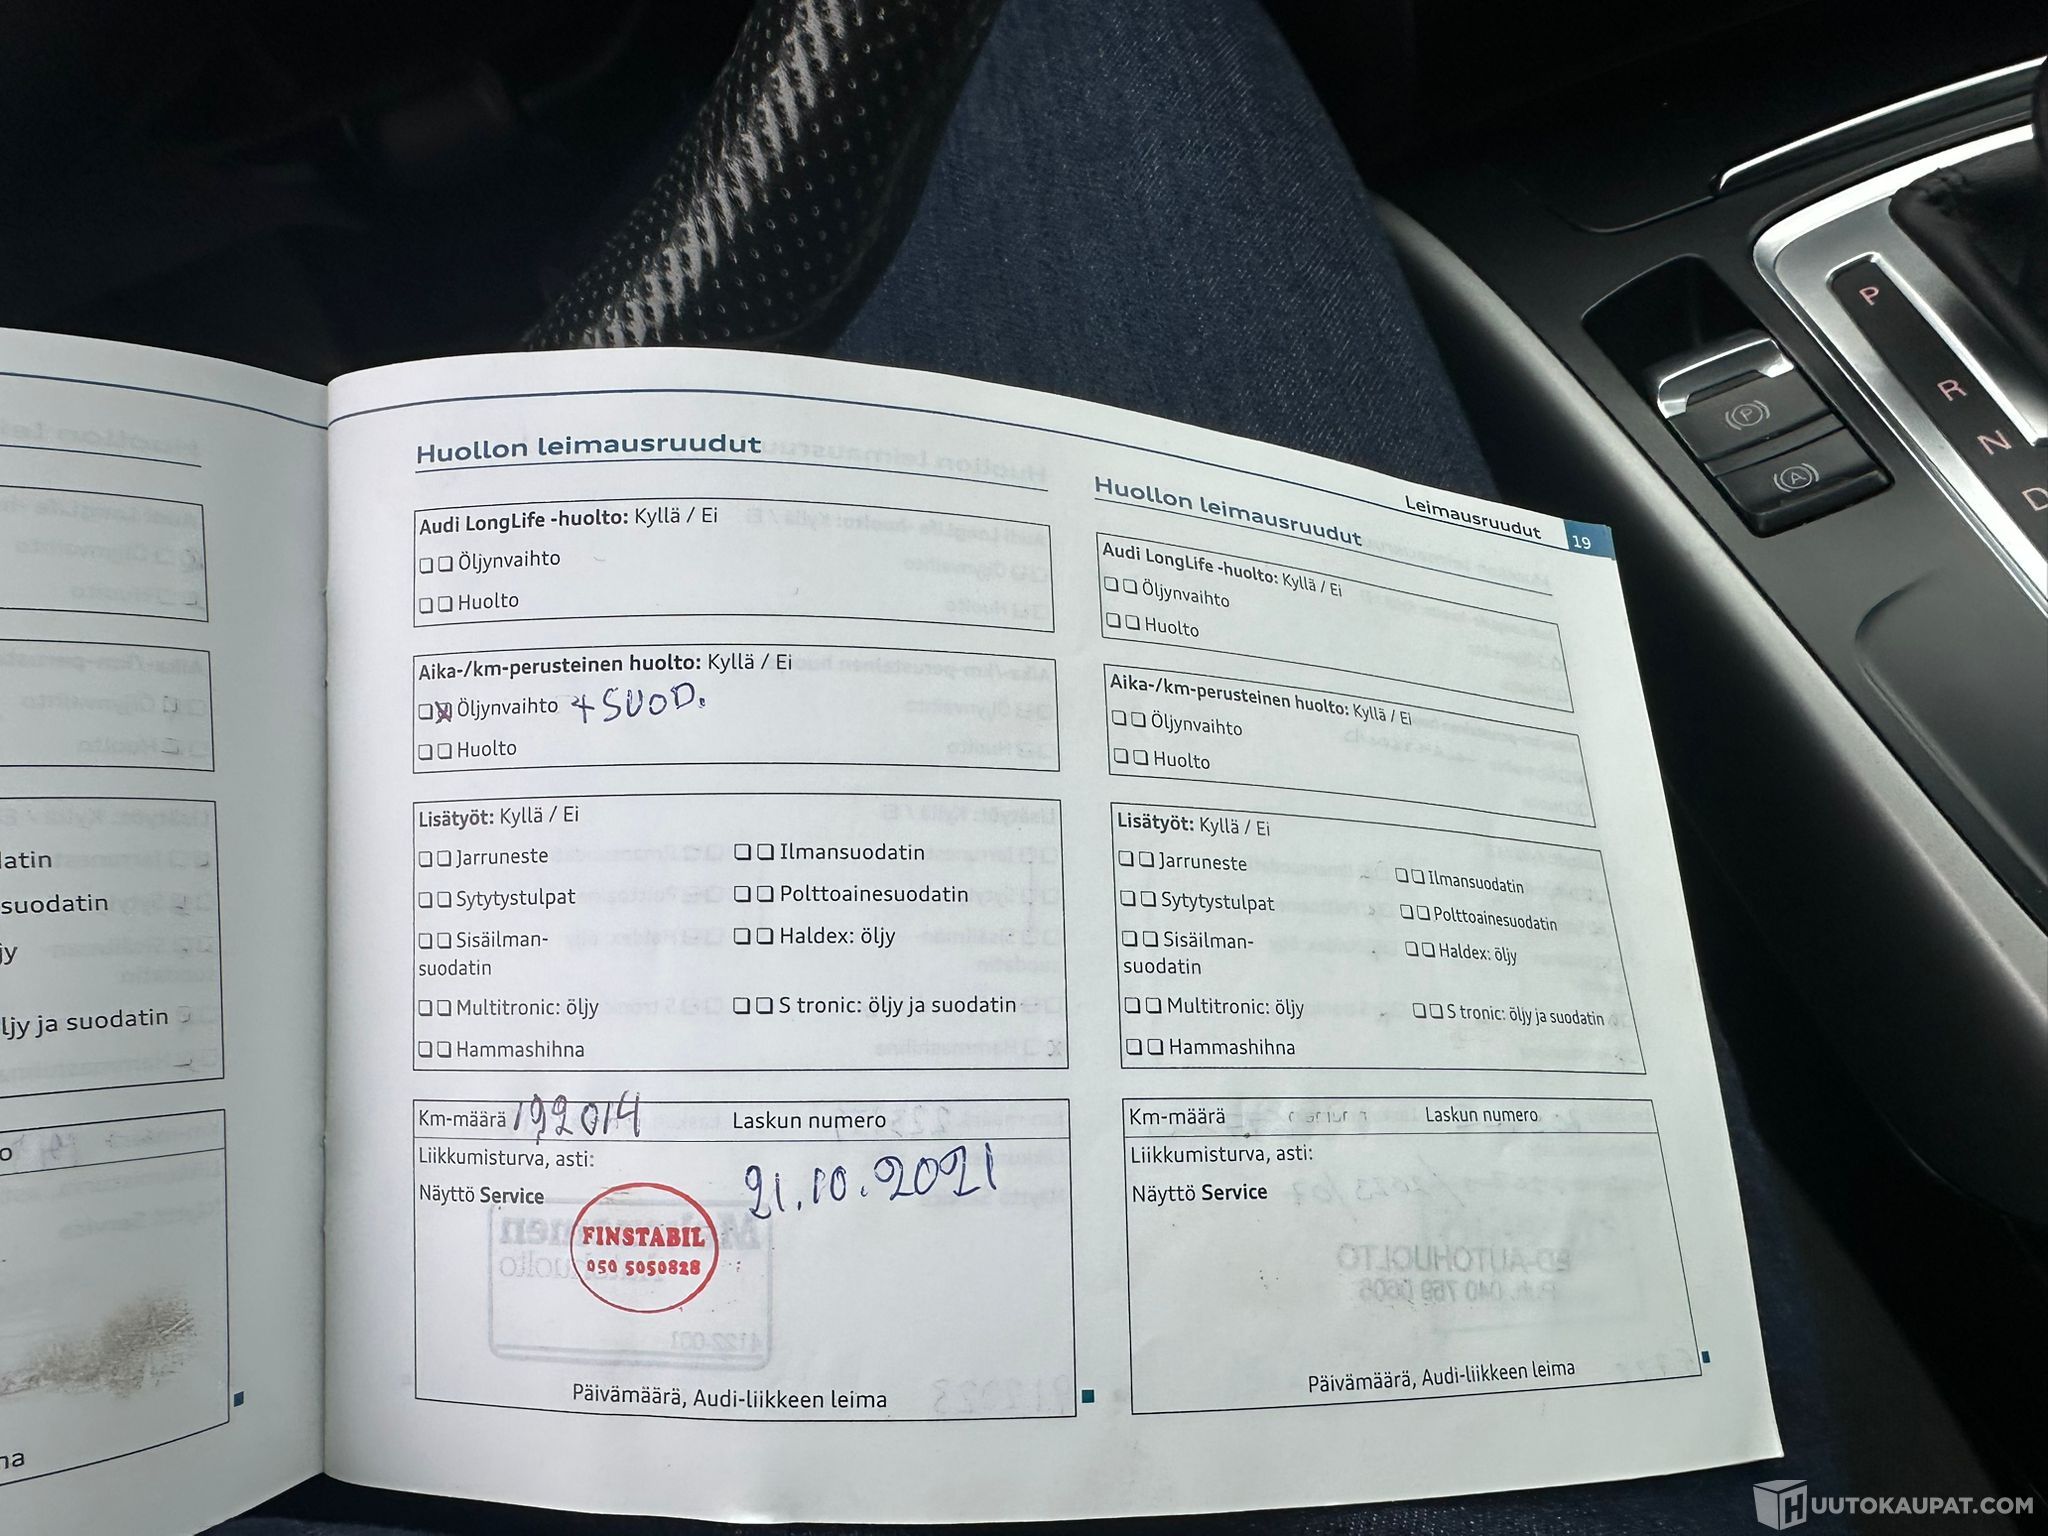 latin
suodatin
jy
ljy ja suodatin
o
na
Huollon leimausruudut
Audi LongLife -huolto: Kyllä / Ei
Öljynvaihto
Huolto
Aika-/km-perusteinen huolto: Kyllä / Ei
Öljynvaihto + SUOD.
Huolto
Lisätyöt: Kyllä / Ei
Jarruneste
Ilmansuodatin
Sytytystulpat
Polttoainesuodatin
Sisäilman-
suodatin
Haldex: öljy
Multitronic: öljy
S tronic: öljy ja suodatin
Hammashihna
Km-määrä 192014
Laskun numero
Liikkumisturva, asti:
Näyttö Service
21.10.2021
FINSTABIL
050 5050828
Päivämäärä, Audi-liikkeen leima
Leimausruudut 19
Huollon leimausruudut
Audi LongLife -huolto: Kyllä / Ei
Öljynvaihto
Huolto
Aika-/km-perusteinen huolto: Kyllä / Ei
Öljynvaihto
Huolto
Lisätyöt: Kyllä / Ei
Jarruneste
Ilmansuodatin
Sytytystulpat
Polttoainesuodatin
Sisäilman-
suodatin
Haldex: öljy
Multitronic: öljy
S tronic: öljy ja suodatin
Hammashihna
Km-määrä
Laskun numero
Liikkumisturva, asti:
Näyttö Service
Päivämäärä, Audi-liikkeen leima
P
R
N
D
P
A
HUUTOKAUPAT.COM